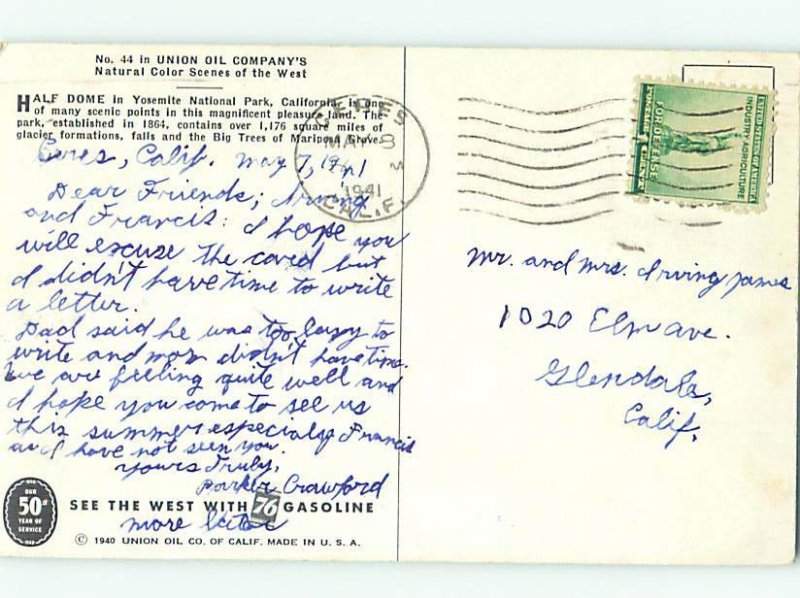 No. 44 in UNION OIL COMPANY'S
Natural Color Scenes of the West
HALF DOME in Yosemite National Park, California, is one
of many scenic points in this magnificent pleasure land. The
park, established in 1864, contains over 1,176 square miles of
glacier formations, falls and the Big Trees of Mariposa Grove.
CERES
MAY 8
1941
CALIF.
UNITED STATES OF AMERICA
INDUSTRY AGRICULTURE
FOR DEFENSE
Ceres, Calif. May 7, 1941
Dear Friends; Irving
and Francis: I hope you
will excuse the card but
I didn't have time to write
a letter.
Dad said he was too lazy to
write and mom didn't have time.
We are feeling quite well and
I hope you come to see us
this summer especialy Francis
as I have not seen you.
Yours Truly,
Parker Crawford
more later
Mr. and Mrs. Irving James
1020 Elm ave.
Glendale,
Calif.
1890
OUR
50th
YEAR OF
SERVICE
1940
SEE THE WEST WITH 76 GASOLINE
© 1940 UNION OIL CO. OF CALIF. MADE IN U. S. A.